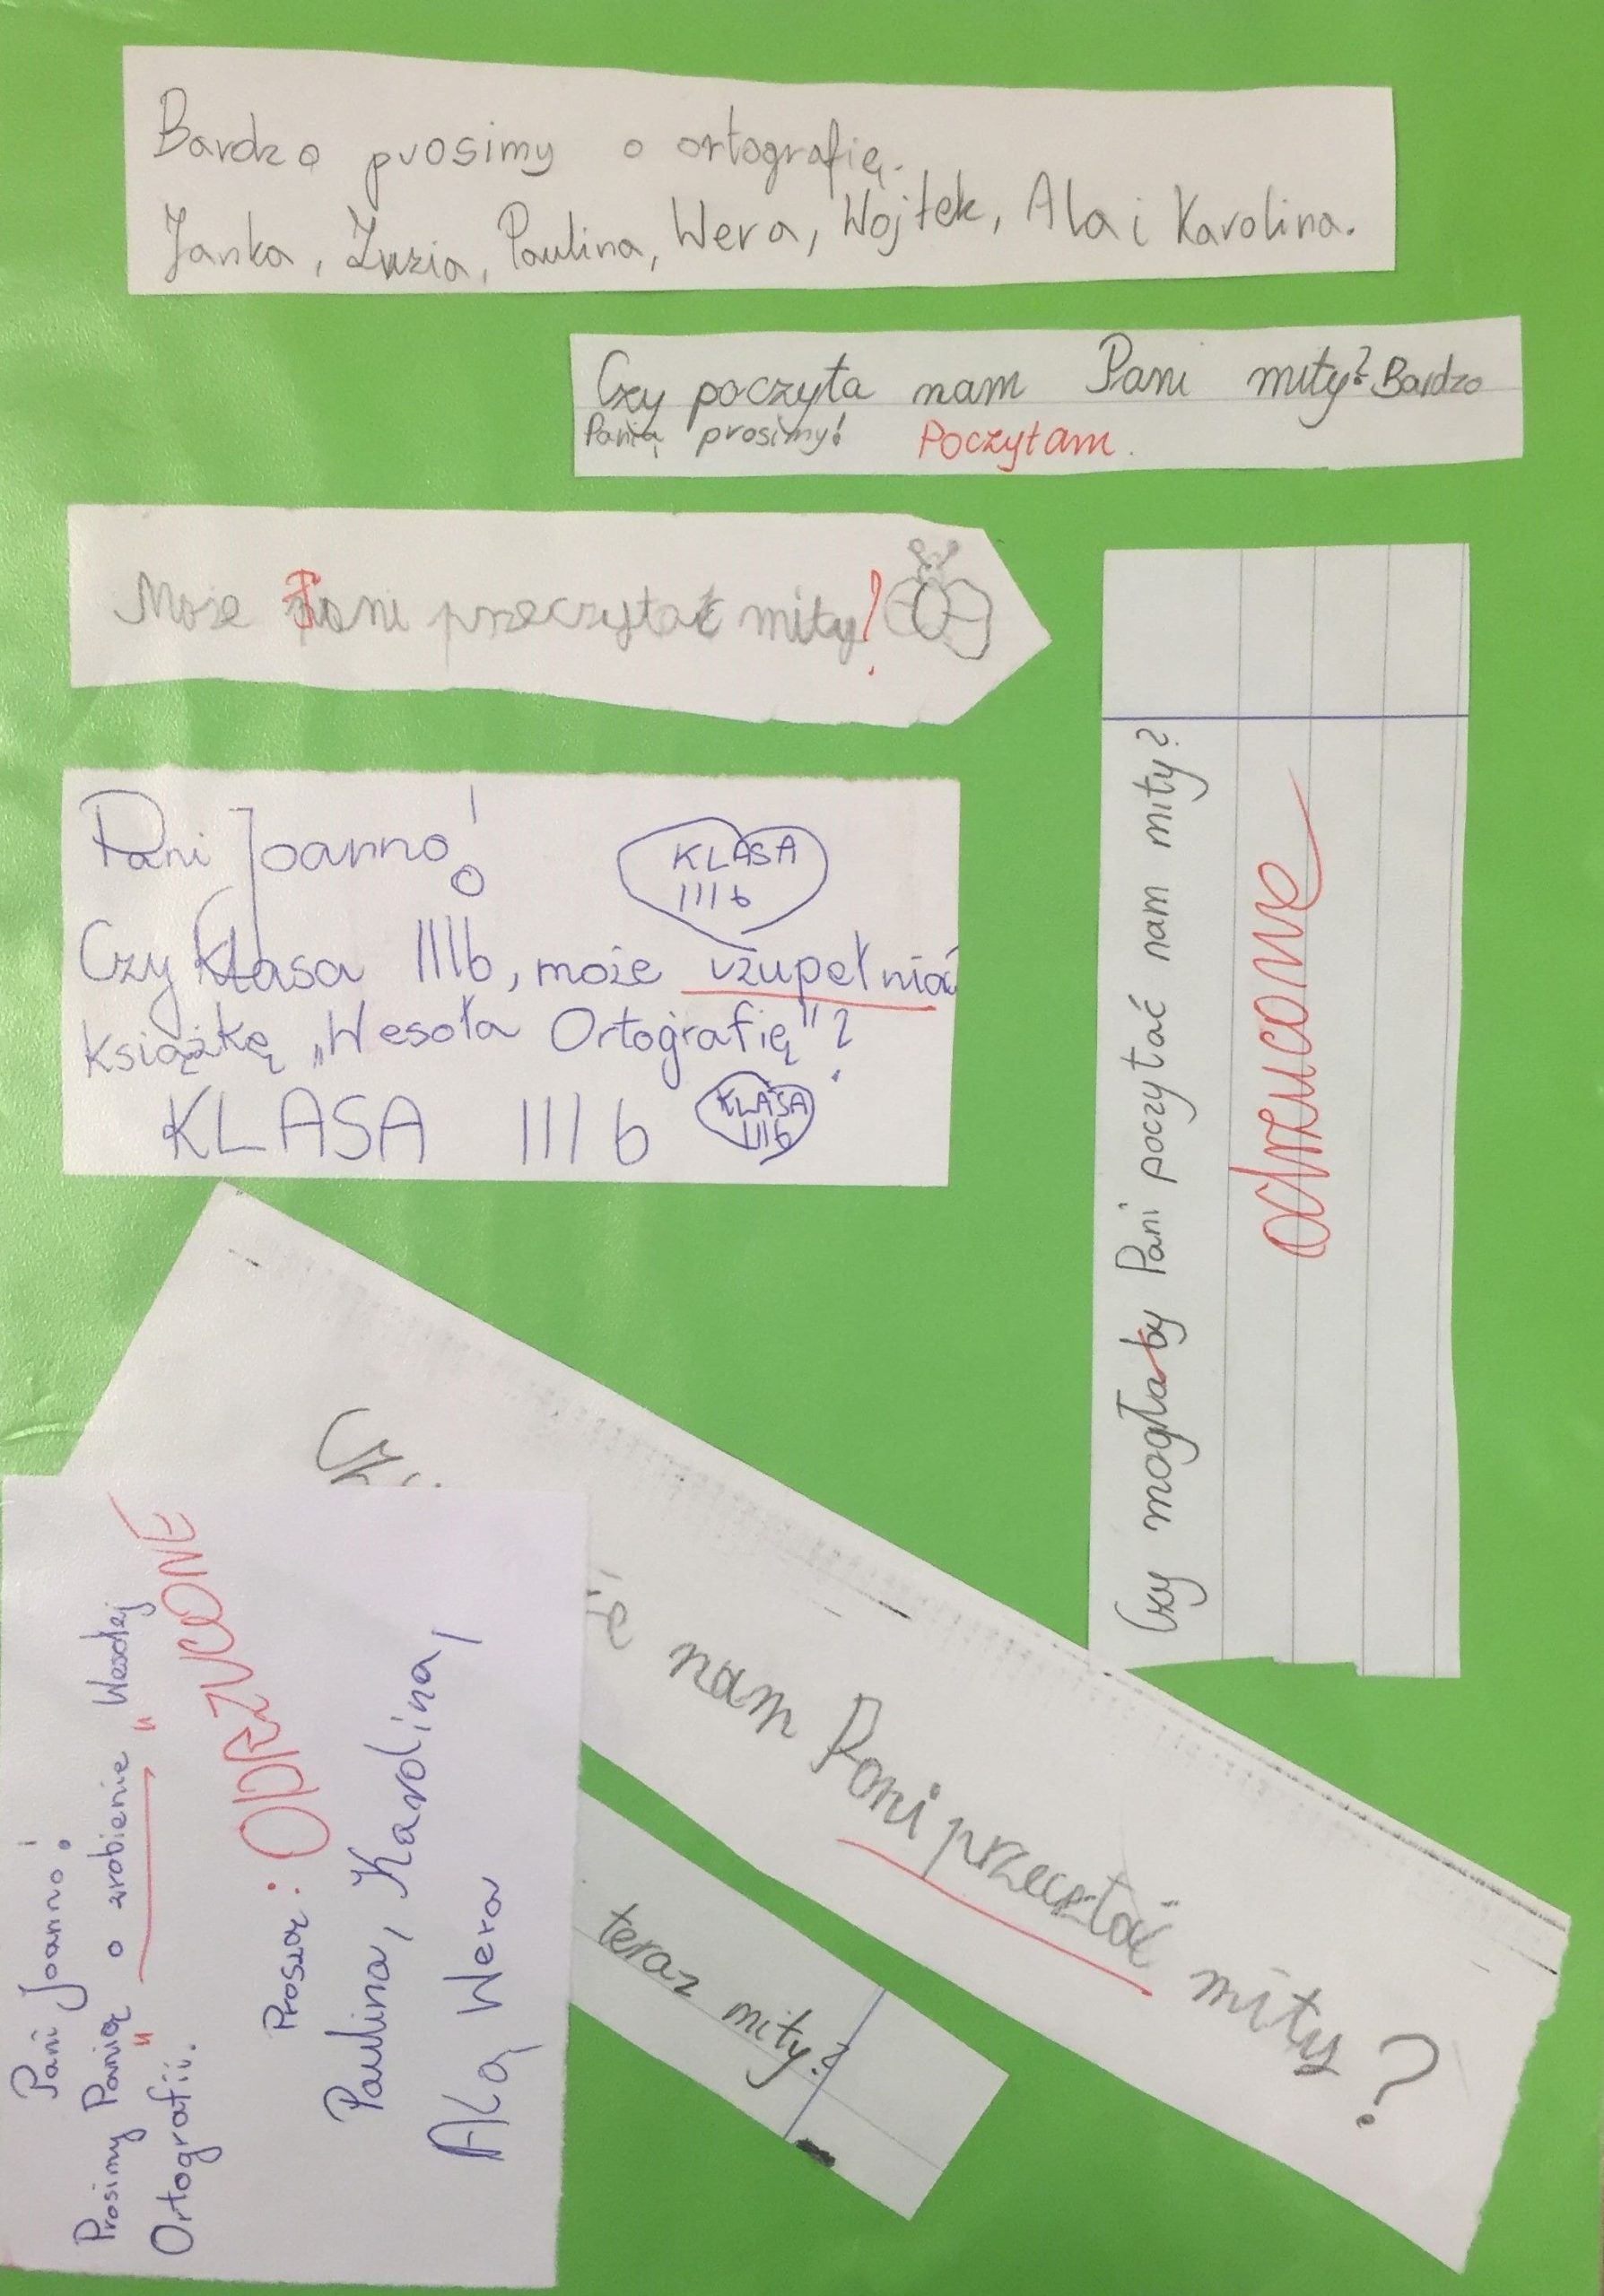 Bardzo prosimy o ortografię.
Janka, Zuzia, Paulina, Wera, Wojtek, Ala i Karolina.
Czy poczyta nam Pani mity? Bardzo
Panią prosimy! Poczytam.
Może Pani przeczytać mity?
Pani Joanno!
KLASA
IIIb
Czy klasa IIIb, może uzupełniać
książkę „Wesoła Ortografię"?
KLASA IIIb
KLASA
IIIb
Czy mogłaby Pani poczytać nam mity?
odrzucone
nam Pani przecztać mity?
teraz mity?
Pani Joanno!
Prosimy Panią o zrobienie „Wesołej
Ortografii.
ODRZUCONE
Proszą:
Paulina, Karolina,
Ala, Wera